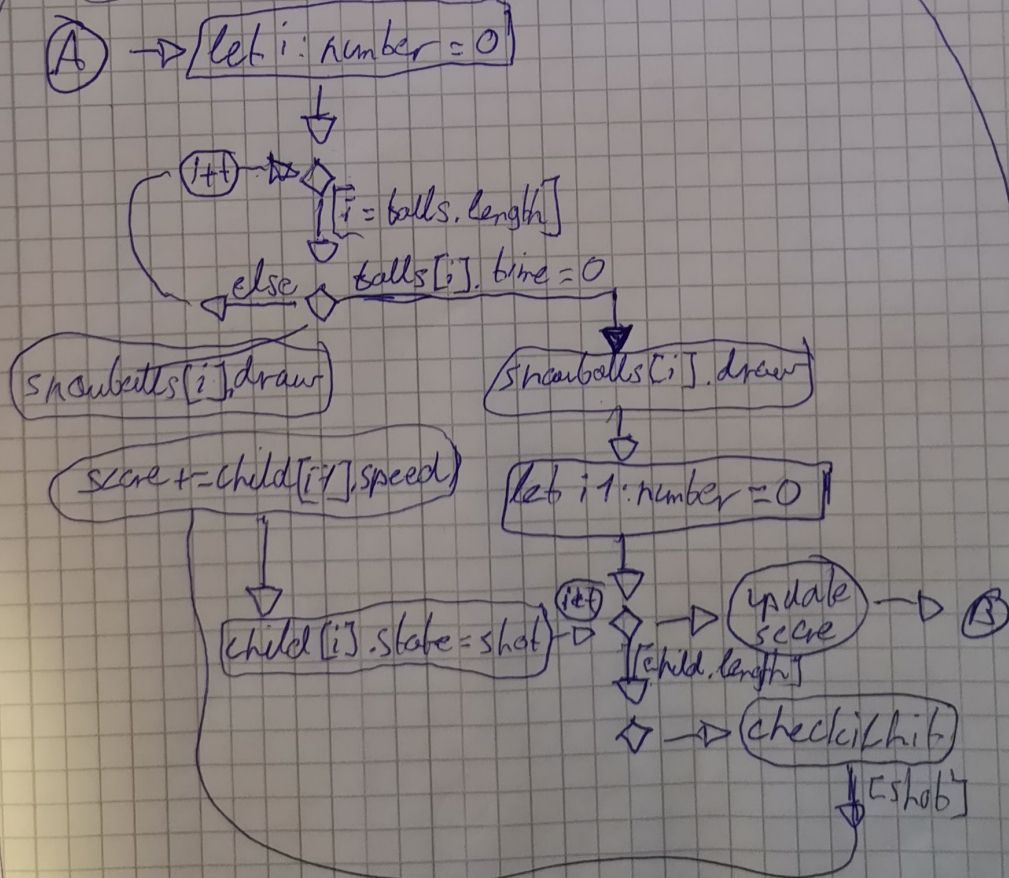 A
let i: number = 0
i++
[i = balls.length]
else
balls[i].time = 0
snowballs[i].draw
snowballs[i].draw
score += child[i].speed
let i1: number = 0
i++
update
score
B
child[i].state = shot
[child.length]
checkifhit
[shot]